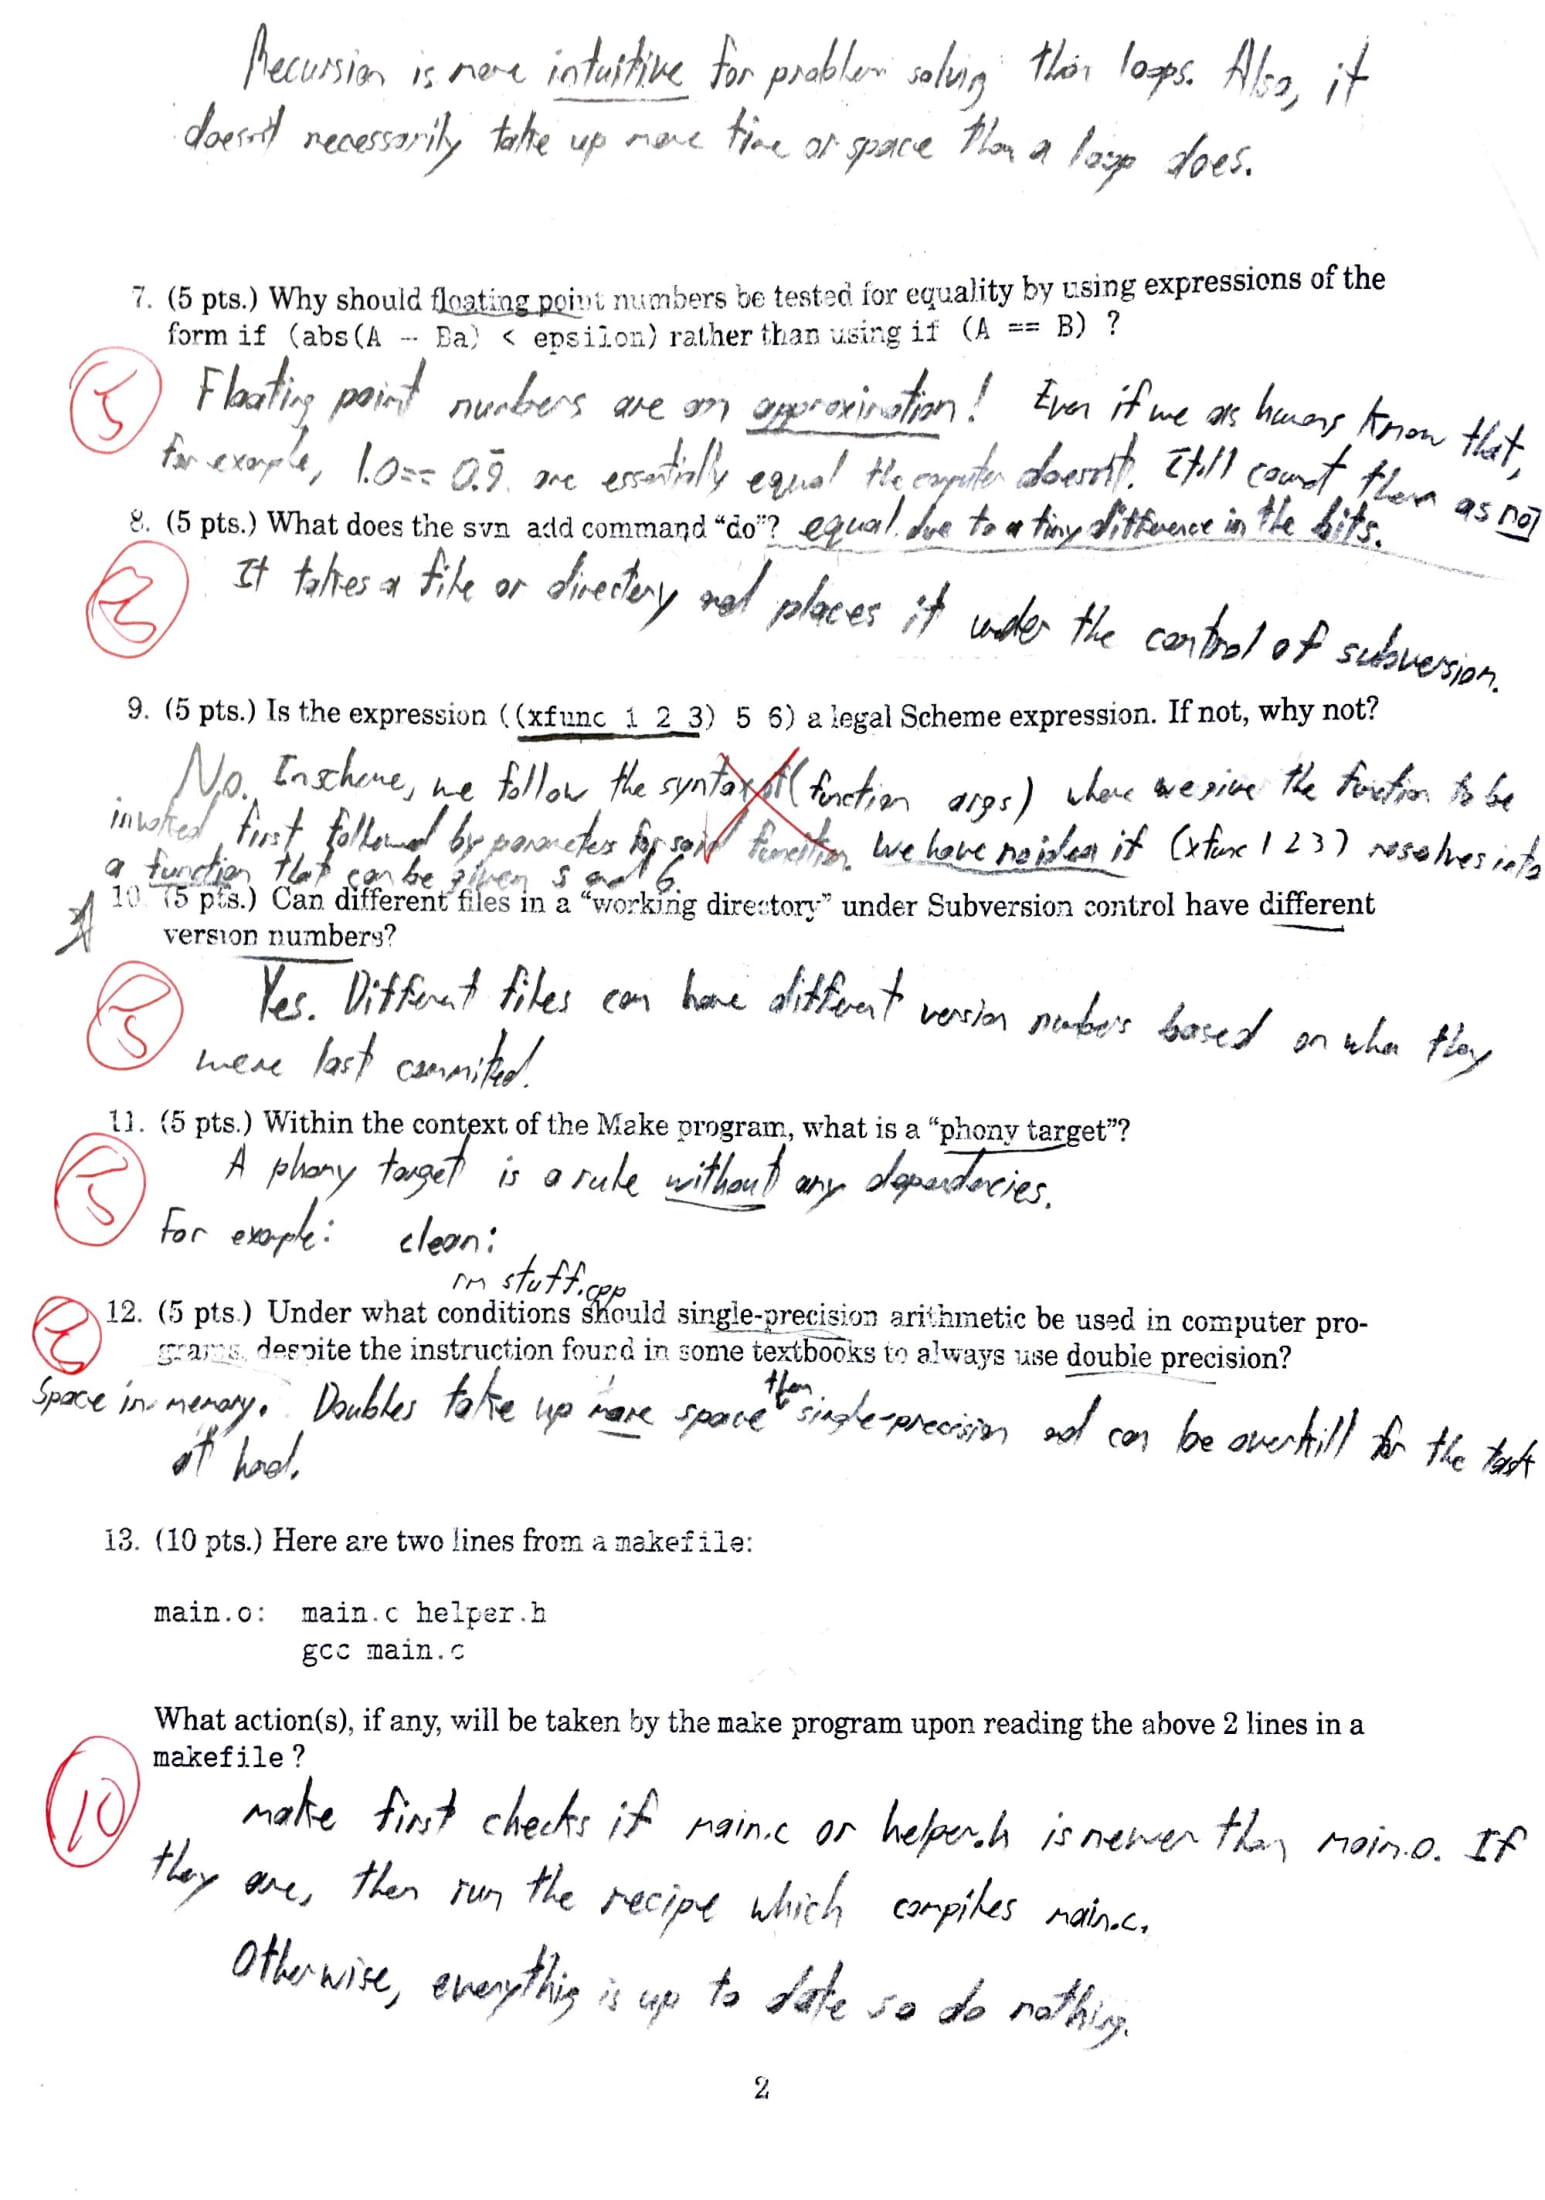 Recursion is more intuitive for problem solving than loops. Also, it
doesn't necessarily take up more time or space than a loop does.
7. (5 pts.) Why should floating point numbers be tested for equality by using expressions of the
form if (abs(A - Ba) < epsilon) rather than using if (A == B) ?
5
Floating point numbers are an approximation! Even if we as humans know that,
for example, 1.0 == 0.9̅ are essentially equal the computer doesn't. It'll count them as not
8. (5 pts.) What does the svn add command “do”? equal due to a tiny difference in the bits.
It takes a file or directory and places it under the control of subversion.
9. (5 pts.) Is the expression ((xfunc 1 2 3) 5 6) a legal Scheme expression. If not, why not?
No. In scheme, we follow the syntax of (function args) where we give the function to be
invoked first followed by parameters for said function. We have no idea if (xfunc 1 2 3) resolves into
a function that can be given 5 and 6
10. (5 pts.) Can different files in a “working directory” under Subversion control have different
version numbers?
5
Yes. Different files can have different version numbers based on when they
were last commited.
11. (5 pts.) Within the context of the Make program, what is a “phony target”?
5
A phony target is a rule without any dependencies.
For example: clean:
rm stuff.cpp
12. (5 pts.) Under what conditions should single-precision arithmetic be used in computer pro-
grams, despite the instruction found in some textbooks to always use double precision?
Space in memory. Doubles take up more space than single-precision and can be overkill for the task
at hand.
13. (10 pts.) Here are two lines from a makefile:
main.o: main.c helper.h
gcc main.c
What action(s), if any, will be taken by the make program upon reading the above 2 lines in a
makefile ?
10
make first checks if main.c or helper.h is newer than main.o. If
they are, then run the recipe which compiles main.c.
Otherwise, everything is up to date so do nothing.
2